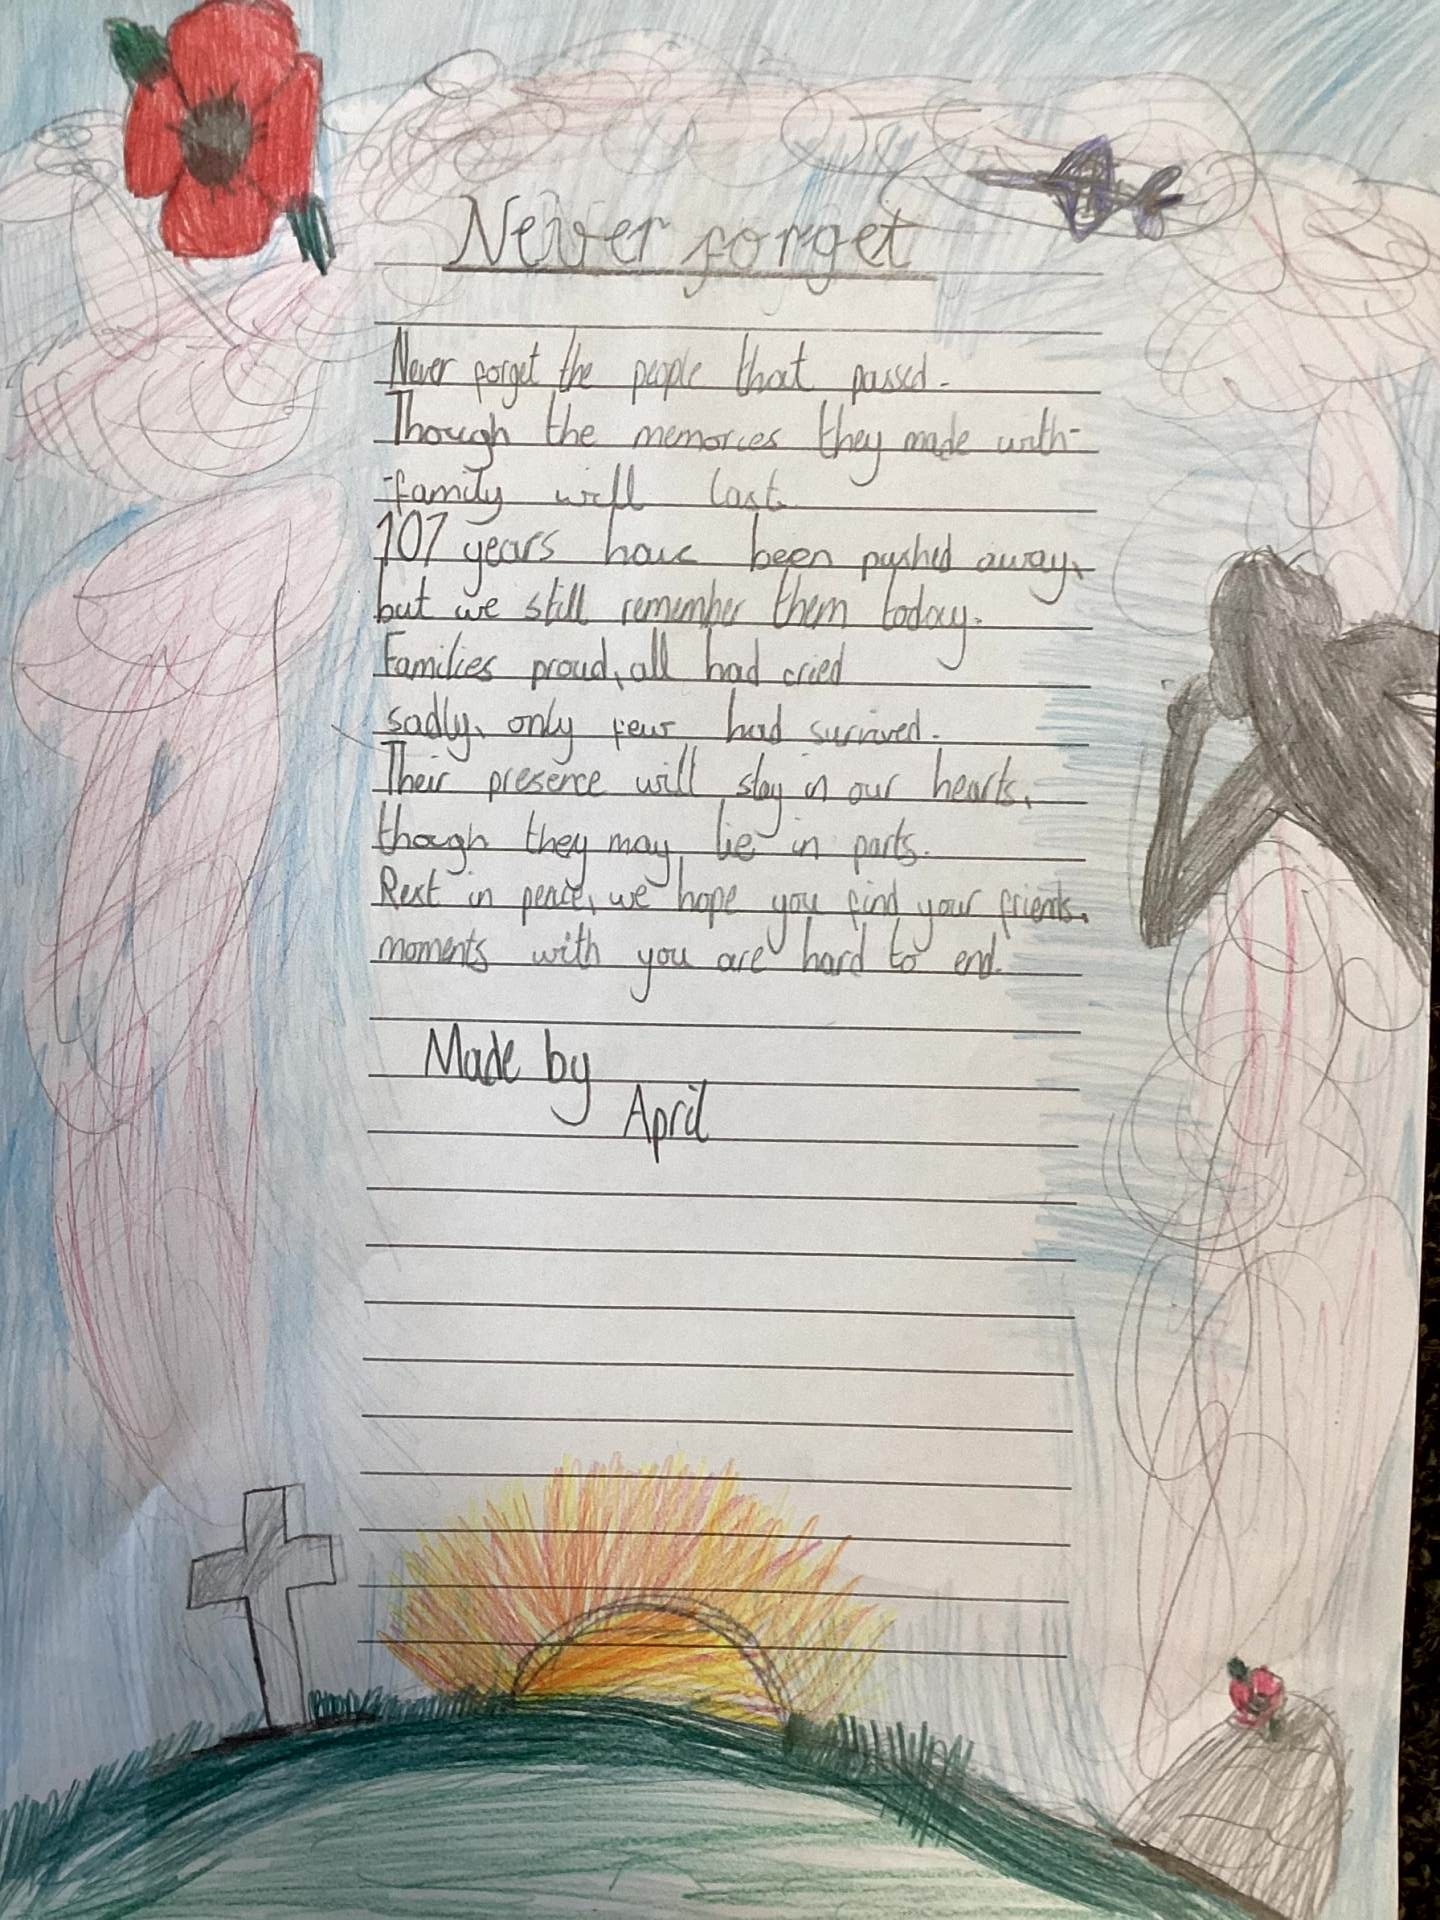 Never forget
Never forget the people that passed.
Though the memories they made with-
-family will last.
107 years have been pushed away,
but we still remember them today.
Families proud, all had cried
sadly, only few had survived.
Their presence will stay in our hearts,
though they may lie in parts.
Rest in peace, we hope you find your friends,
moments with you are hard to end.
Made by
April